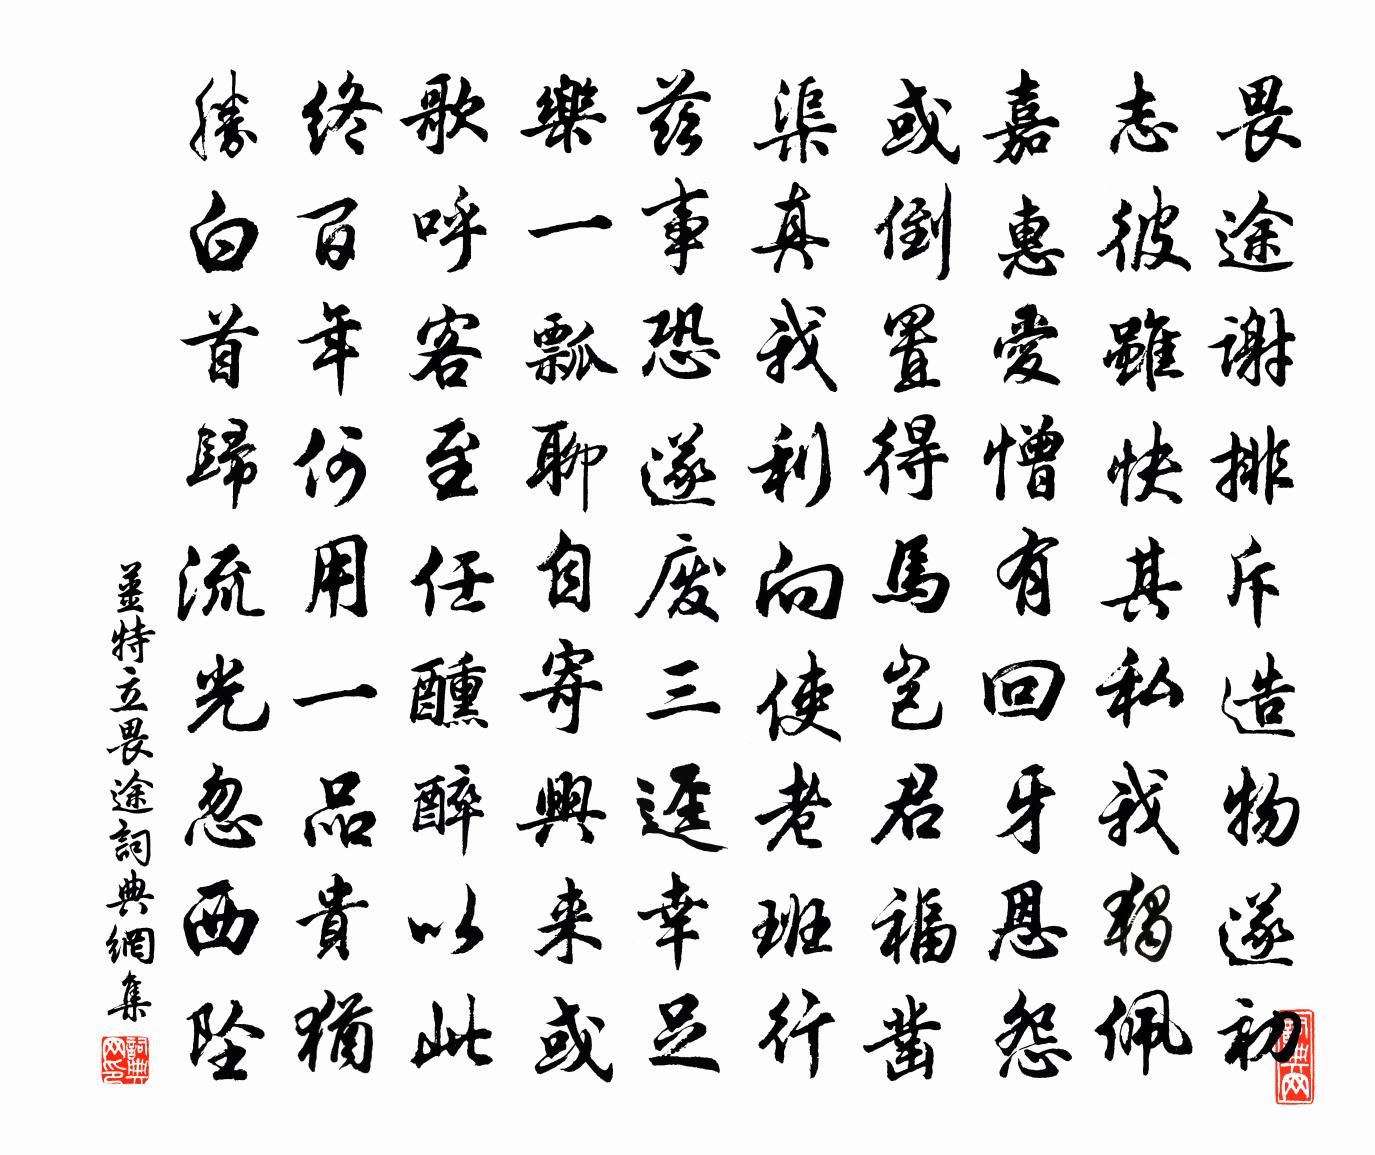 畏途謝排斥造物遂初
志彼雖快其私我獨佩
嘉惠愛憎有回牙恩怨
或倒置得馬豈君福凿
渠真我利向使老班行
茲事恐遂废三逕幸足
樂一瓢聊自寄興来或
歌呼客至任醺醉以此
終百年何用一品貴猶
勝白首歸流光忽西坠
姜特立畏途詞典網集
詞典网
詞典网印